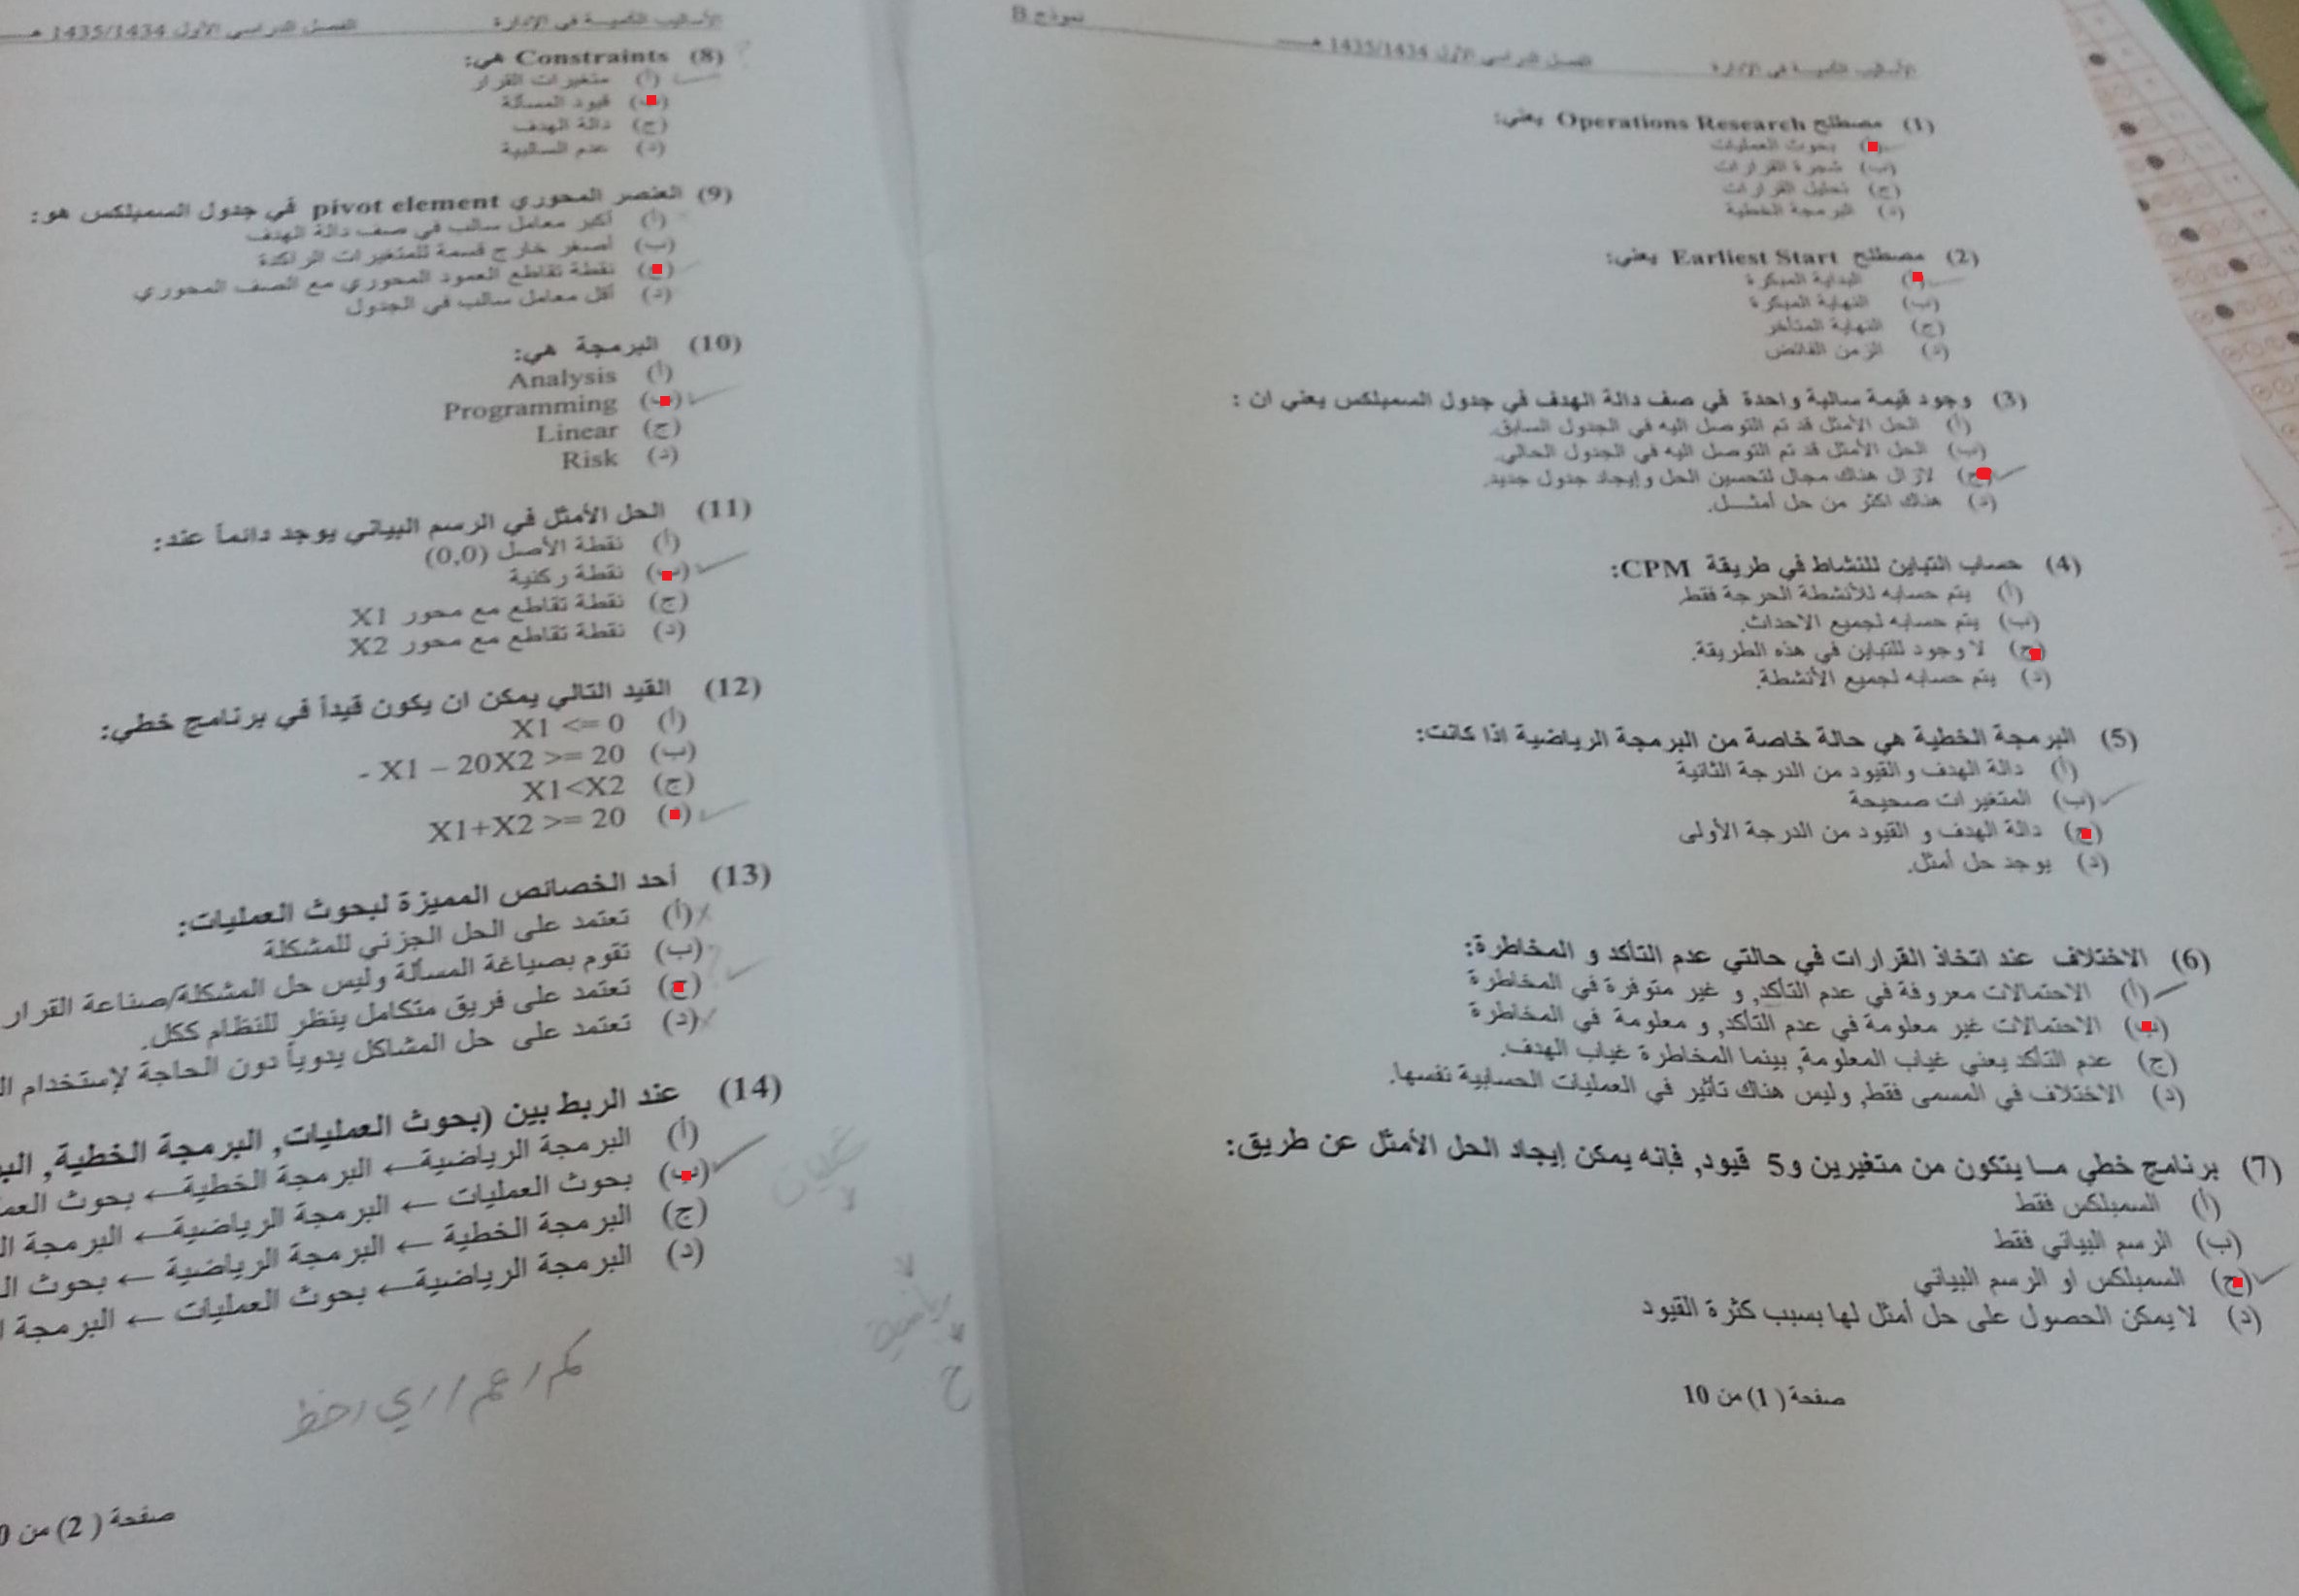 نموذج B
الأساليب الكمية في الإدارة الفصل الدراسي الأول 1435/1434 هـ
(1) مصطلح Operations Research يعني:
(أ) بحوث العمليات
(ب) شجرة القرارات
(ج) تحليل القرارات
(د) البرمجة الخطية
(2) مصطلح Earliest Start يعني:
(أ) البداية المبكرة
(ب) النهاية المبكرة
(ج) النهاية المتأخر
(د) الزمن الفائض
(3) وجود قيمة سالبة واحدة في صف دالة الهدف في جدول السمبلكس يعني ان :
(أ) الحل الأمثل قد تم التوصل اليه في الجدول السابق.
(ب) الحل الأمثل قد تم التوصل اليه في الجدول الحالي.
(ج) لازال هناك مجال لتحسين الحل وإيجاد جدول جديد.
(د) هناك اكثر من حل أمثـــل.
(4) حساب التباين للنشاط في طريقة CPM:
(أ) يتم حسابه للأنشطة الحرجة فقط.
(ب) يتم حسابه لجميع الاحداث.
(ج) لا وجود للتباين في هذه الطريقة.
(د) يتم حسابه لجميع الأنشطة.
(5) البرمجة الخطية هي حالة خاصة من البرمجة الرياضية اذا كانت:
(أ) دالة الهدف والقيود من الدرجة الثانية
(ب) المتغيرات صحيحة
(ج) دالة الهدف و القيود من الدرجة الأولى
(د) يوجد حل أمثل.
(6) الاختلاف عند اتخاذ القرارات في حالتي عدم التأكد و المخاطرة:
(أ) الاحتمالات معروفة في عدم التأكد, و غير متوفرة في المخاطرة
(ب) الاحتمالات غير معلومة في عدم التأكد, و معلومة في المخاطرة
(ج) عدم التأكد يعني غياب المعلومة, بينما المخاطرة غياب الهدف.
(د) الاختلاف في المسمى فقط, وليس هناك تأثير في العمليات الحسابية نفسها.
(7) برنامج خطي مـا يتكون من متغيرين و5 قيود, فإنه يمكن إيجاد الحل الأمثل عن طريق:
(أ) السمبلكس فقط
(ب) الرسم البياني فقط
(ج) السمبلكس او الرسم البياني
(د) لا يمكن الحصول على حل أمثل لها بسبب كثرة القيود
صفحة ( 1) من 10
الأساليب الكمية في الإدارة الفصل الدراسي الأول 1435/1434 هـ
(8) Constraints هي:
(أ) متغيرات القرار
(ب) قيود المسألة
(ج) دالة الهدف
(د) عدم السالبية
(9) العنصر المحوري pivot element في جدول السمبلكس هو:
(أ) أكبر معامل سالب في صف دالة الهدف
(ب) أصغر خارج قسمة للمتغيرات الراكدة
(ج) نقطة تقاطع العمود المحوري مع الصف المحوري
(د) أقل معامل سالب في الجدول
(10) البرمجة هي:
(أ) Analysis
(ب) Programming
(ج) Linear
(د) Risk
(11) الحل الأمثل في الرسم البياني يوجد دائماً عند:
(أ) نقطة الأصل (0,0)
(ب) نقطة ركنية
(ج) نقطة تقاطع مع محور X1
(د) نقطة تقاطع مع محور X2
(12) القيد التالي يمكن ان يكون قيداً في برنامج خطي:
(أ) X1 <= 0
(ب) - X1 – 20X2 >= 20
(ج) X1<X2
(د) X1+X2 >= 20
(13) أحد الخصائص المميزة لبحوث العمليات:
(أ) تعتمد على الحل الجزئي للمشكلة
(ب) تقوم بصياغة المسألة وليس حل المشكلة/صناعة القرار
(ج) تعتمد على فريق متكامل ينظر للنظام ككل.
(د) تعتمد على حل المشاكل يدوياً دون الحاجة لإستخدام
(14) عند الربط بين (بحوث العمليات, البرمجة الخطية,
(أ) البرمجة الرياضية← البرمجة الخطية← بحوث
(ب) بحوث العمليات ← البرمجة الرياضية← البرمجة
(ج) البرمجة الخطية ← البرمجة الرياضية ← بحوث
(د) البرمجة الرياضية← بحوث العمليات ← البرمجة
عمليات
رياضية
خ
صفحة ( 2) من